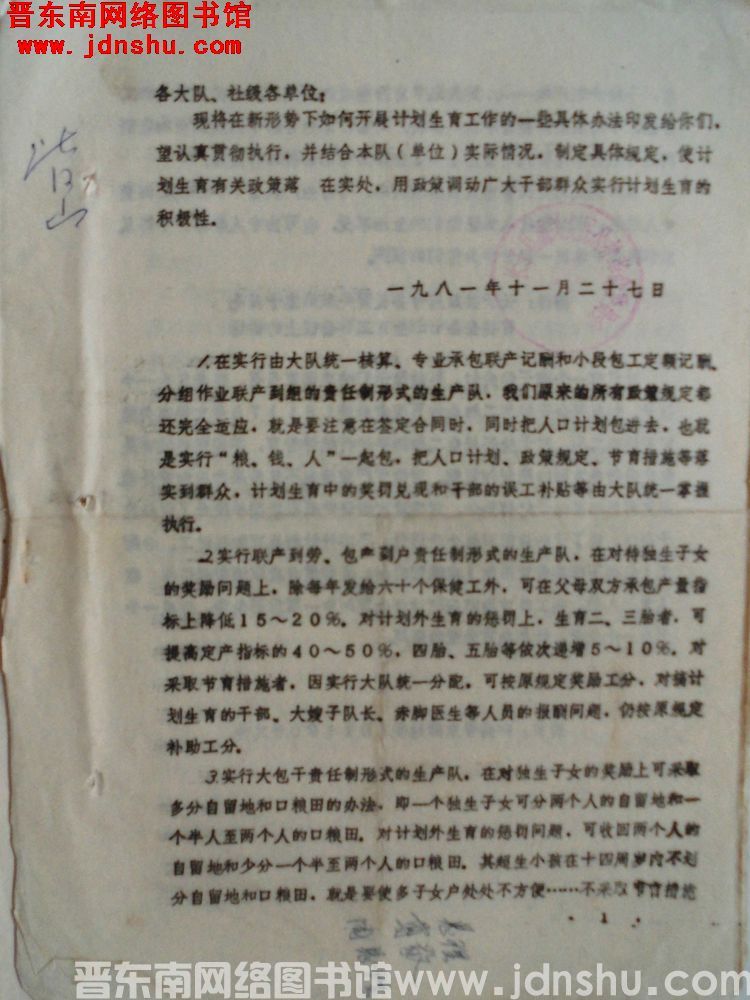 晋东南网络图书馆
www.jdnshu.com
各大队、社级各单位:
现将在新形势下如何开展计划生育工作的一些具体办法印发给你们,
望认真贯彻执行,并结合本队(单位)实际情况,制定具体规定,使计
划生育有关政策落 在实处,用政策调动广大干部群众实行计划生育的
积极性。
一九八一年十一月二十七日
1.在实行由大队统一核算、专业承包联产记酬和小段包工定额记酬、
分组作业联产到组的责任制形式的生产队,我们原来的所有政策规定都
还完全适应,就是要注意在签定合同时,同时把人口计划包进去,也就
是实行“粮、钱、人”一起包,把人口计划、政策规定、节育措施等落
实到群众,计划生育中的奖罚兑现和干部的误工补贴等由大队统一掌握
执行。
2.实行联产到劳、包产到户责任制形式的生产队,在对待独生子女
的奖励问题上,除每年发给六十个保健工外,可在父母双方承包产量指
标上降低15~20%。对计划外生育的惩罚上,生育二、三胎者,可
提高定产指标的40~50%,四胎、五胎等依次递增5~10%。对
采取节育措施者,因实行大队统一分配,可按原规定奖励工分,对搞计
划生育的干部、大嫂子队长、赤脚医生等人员的报酬问题,仍按原规定
补助工分。
3.实行大包干责任制形式的生产队,在对独生子女的奖励上可采取
多分自留地和口粮田的办法,即一个独生子女可分两个人的自留地和一
个半人至两个人的口粮田。对计划外生育的惩罚问题,可收回两个人的
自留地和少分一个半至两个人的口粮田。其超生小孩在十四周岁内不划
分自留地和口粮田,就是要使多子女户处处不方便……不采取节育措施
·1·
晋东南网络图书馆www.jdnshu.com